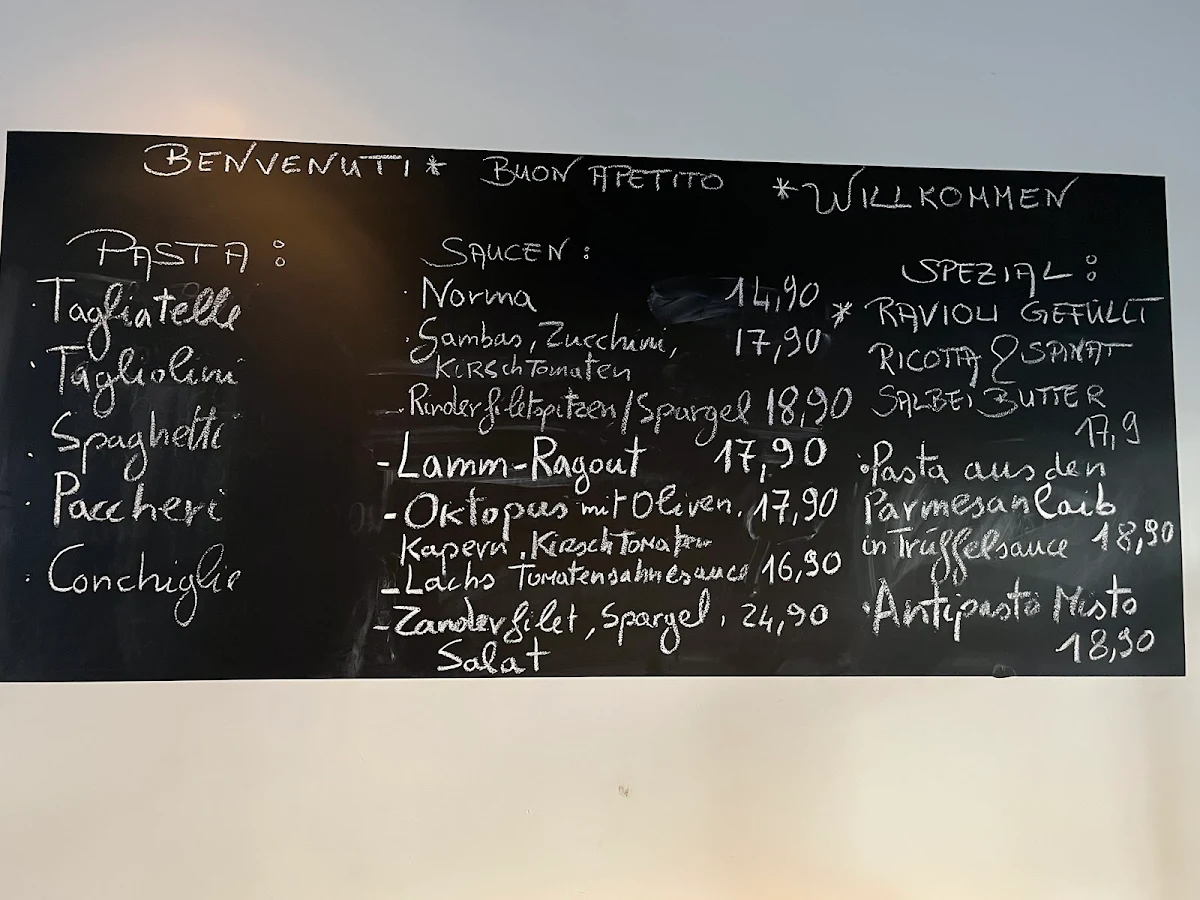 BENVENUTI * BUON APETITO * WILLKOMMEN
PASTA :
· Tagliatelle
· Tagliolini
· Spaghetti
· Paccheri
· Conchiglie
SAUCEN :
· Norma 14,90
· Gambas, Zucchini, 17,90
KIRSchTomaten
- Rinderfiletspitzen/Spargel 18,90
- Lamm-Ragout 17,90
- Oktopus mit Oliven, 17,90
Kapern, KirschTomaten
- Lachs Tomatensahnesauce 16,90
- Zanderfilet, Spargel, 24,90
Salat
SPEZIAL :
* RAVIOLI GEFÜLLT
RICOTA & SPINAT
SALBEI BUTTER
17,9
· Pasta aus den
Parmesanlaib
in Trüffelsauce 18,90
· Antipasto Misto
18,90